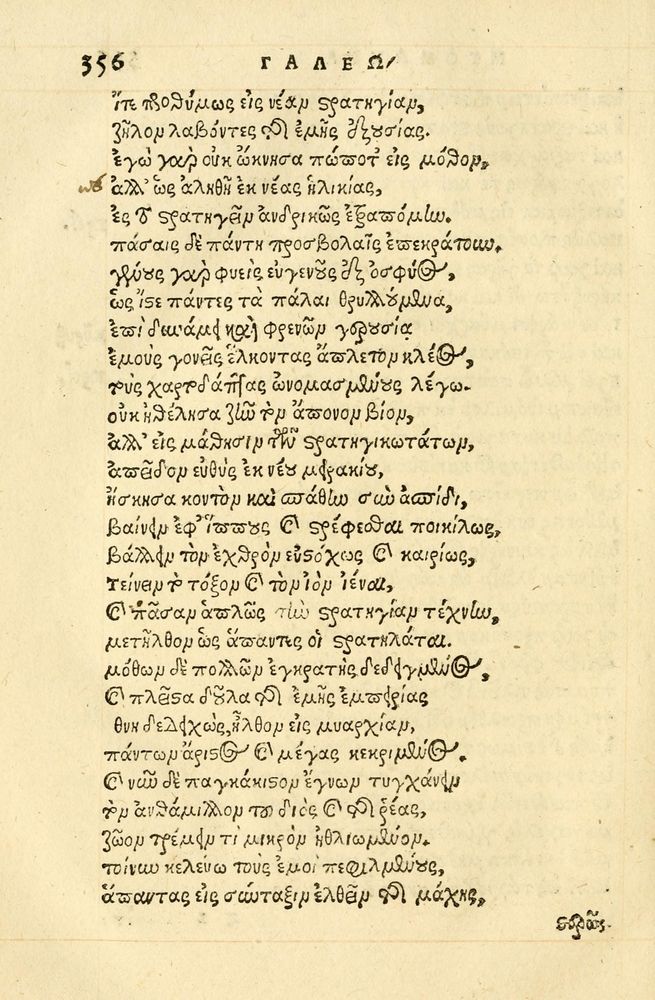 356 ΓΑΛΕΩ/
ἴτε προθύμως εἰς νέαν στρατηγίαν,
ζῆλον λαβόντες τῆς ἐμῆς ἐξουσίας.
ἐγὼ γὰρ οὐκ ὤκνησα πώποτ' εἰς μόθον,
ἀλλ' ὡς ἀληθῆ ἐκ νέας ἡλικίας,
ἐς τὸ στρατηγεῖν ἀνδρικῶς ἐξαπόμην.
πάσαις δὲ πάντη προσβολαῖς ἐπεκράτουν.
γένους γὰρ φυεὶς εὐγενοῦς ἐξ ὀσφύος,
ὡς ἴστε πάντες τὰ πάλαι θρυλλούμενα,
ἐπὶ δυνάμει καὶ φρενῶν γερουσίᾳ
ἐμοὺς γονεῖς ἕλκοντας ἄπλετον κλέος,
τοὺς χαρτδάπτας ὠνομασμένους λέγω.
οὐκ ἠθέλησα ζῆν τὸν ἄπονον βίον,
ἀλλ' εἰς μάθησιν τῶν στρατηγικωτάτων,
ἀπεῖδον εὐθὺς ἐκ νέου μειρακίου,
ἤσκησα κοντὸν καὶ σπάθην σὺν ἀσπίδι,
βαίνειν ἐφ' ἵππους καὶ στρέφεσθαι ποικίλως,
βάλλειν τὸν ἐχθρὸν εὐστόχως καὶ καιρίως,
τείνειν τὸ τόξον καὶ τὸν ἰὸν ἰέναι,
καὶ πᾶσαν ἁπλῶς τὴν στρατηγίαν τέχνην,
μετῆλθον ὡς ἅπαντες οἱ στρατηλάται.
μόθων δὲ πολλῶν ἐγκρατὴς δεδειγμένος,
καὶ πλεῖστα δοῦλα τῆς ἐμῆς ἐμπειρίας
θνη δελεχὼς, ἦλθον εἰς μυαρχίαν,
πάντων ἄριστος καὶ μέγας κεκριμένος.
καὶ νῦν δὲ παγκάκιστον ἔγνων τυγχάνειν
τὸν ἀνθάμιλλον τοῦ διὸς καὶ τῆς ῥέας,
ζῶον τρέμειν τι μικρὸν ἠθλιωμένον.
τοίνυν κελεύω τοὺς ἐμοὶ πεφιλμένους,
ἅπαντας εἰς σύνταξιν ἐλθεῖν τῆς μάχης,